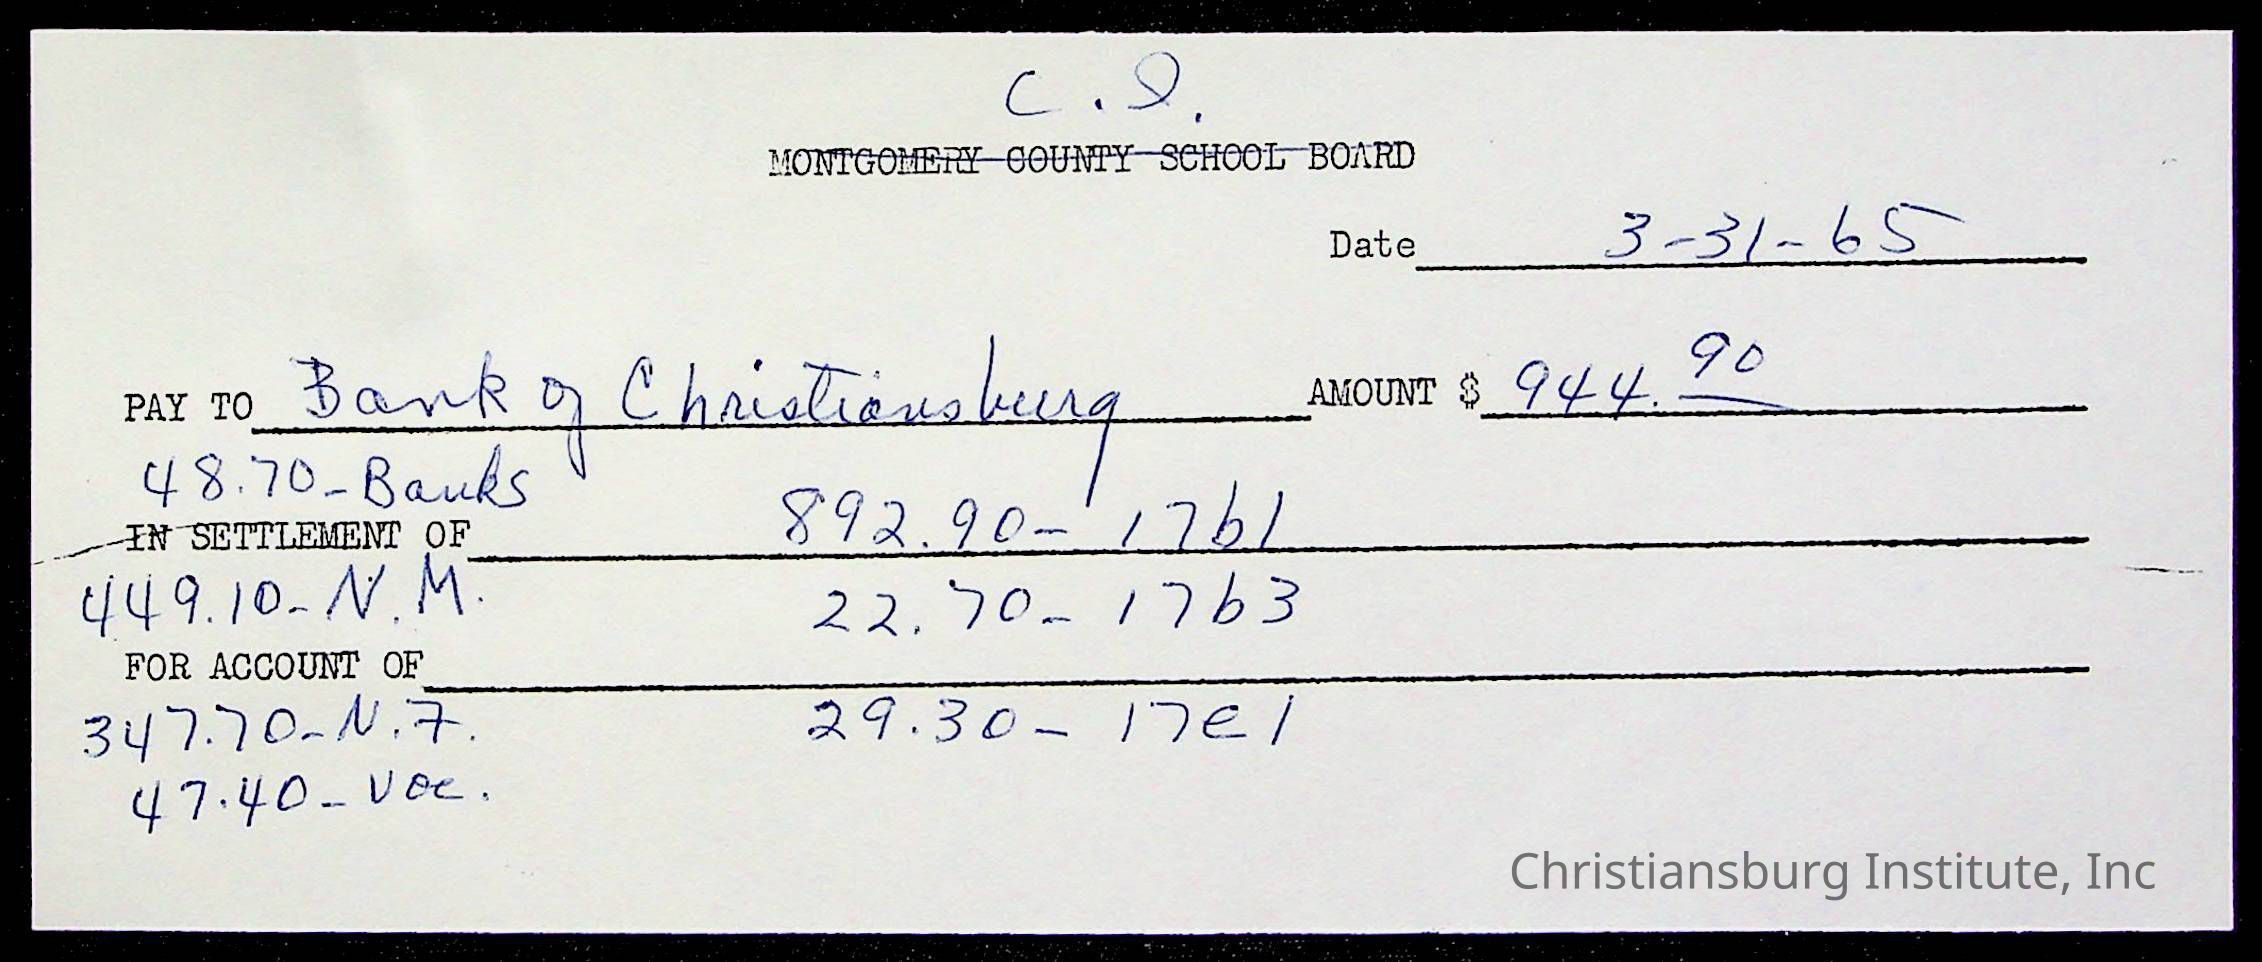 C.I.
MONTGOMERY COUNTY SCHOOL BOARD
Date 3-31-65
PAY TO Bank of Christiansburg AMOUNT $ 944.90
48.70-Banks
892.90- 17b1
IN SETTLEMENT OF
449.10-N.M.
22.70- 17b3
FOR ACCOUNT OF
347.70-N.F.
29.30- 17e1
47.40-Voc.
Christiansburg Institute, Inc